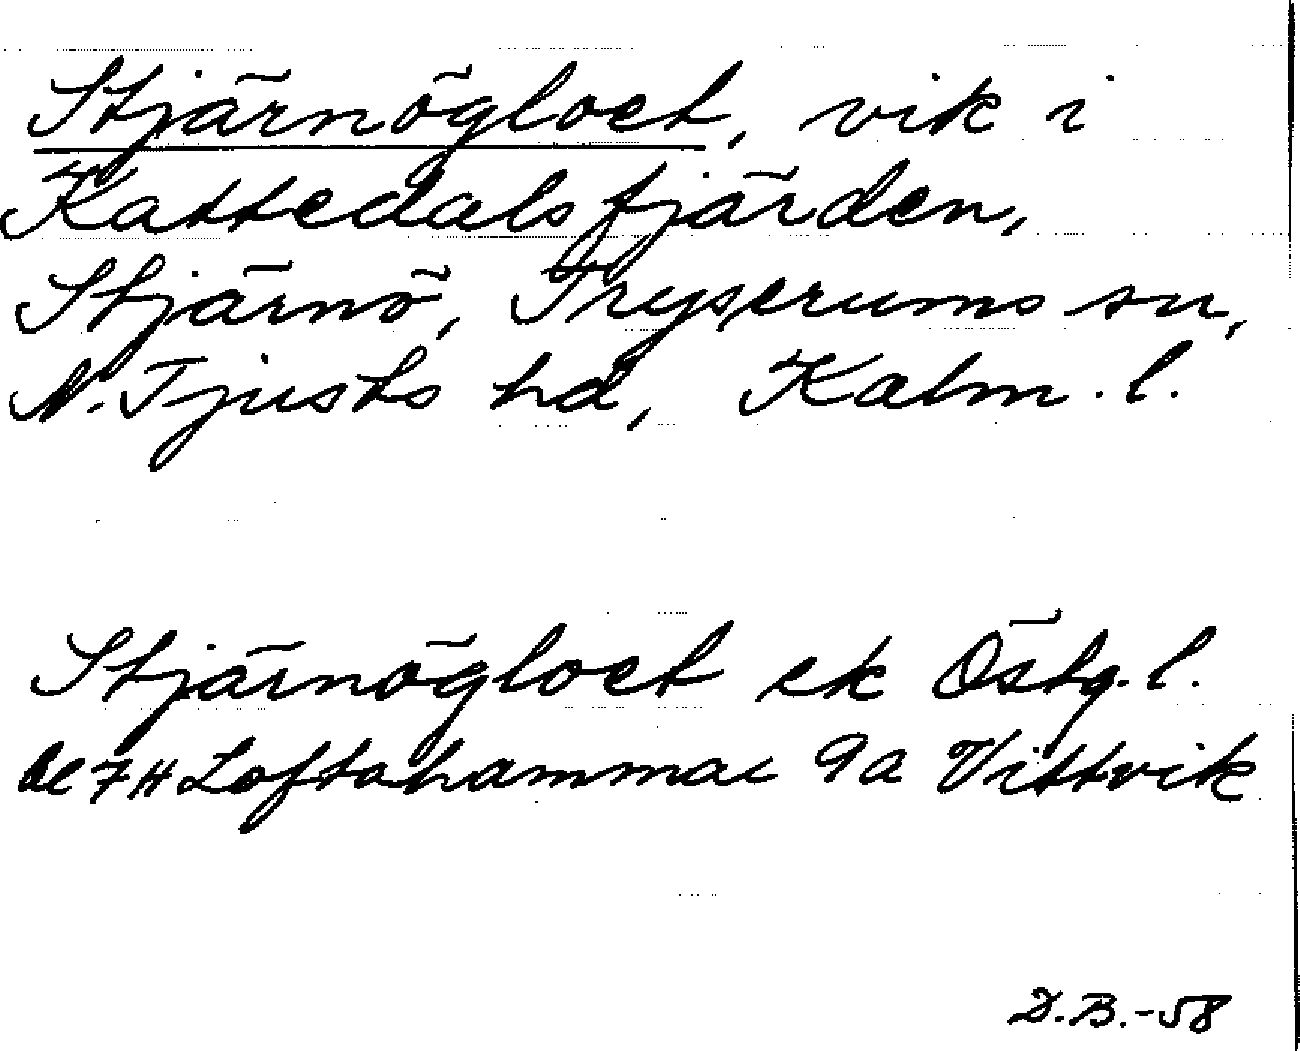 Stjärnögloet, vik i
Kattedalsfjärden,
Stjärnö, Tryserums sn,
N. Tjusts hd, Kalm. l.
Stjärnögloet ek Östg. l.
bl 7H Loftahammar 9a Vittvik
D.B.-58